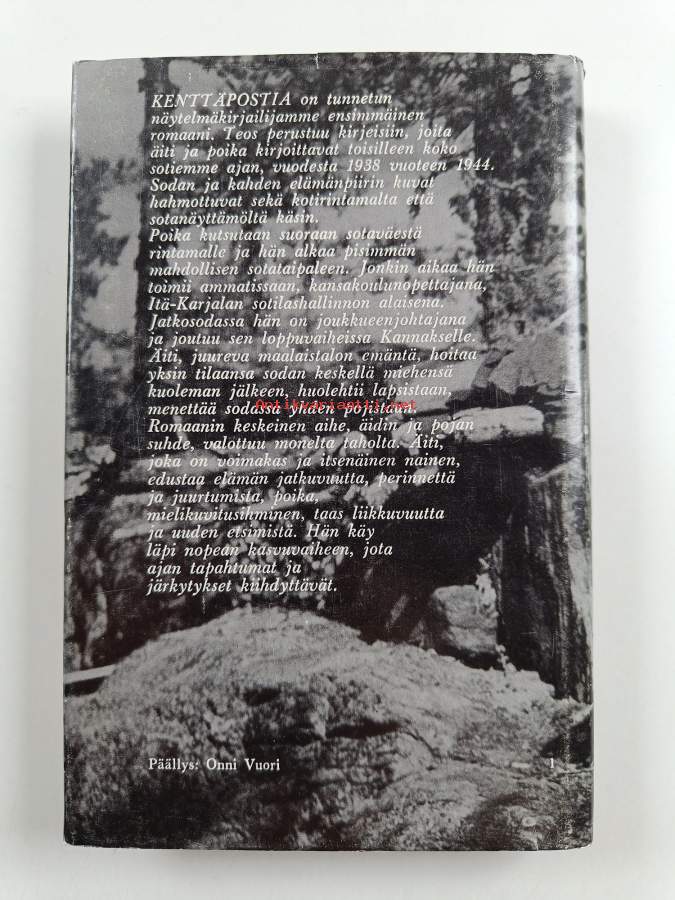 KENTTÄPOSTIA on tunnetun
näytelmäkirjailijamme ensimmäinen
romaani. Teos perustuu kirjeisiin, joita
äiti ja poika kirjoittavat toisilleen koko
sotiemme ajan, vuodesta 1938 vuoteen 1944.
Sodan ja kahden elämänpiirin kuvat
hahmottuvat sekä kotirintamalta että
sotanäyttämöltä käsin.
Poika kutsutaan suoraan sotaväestä
rintamalle ja hän alkaa pisimmän
mahdollisen sotataipaleen. Jonkin aikaa hän
toimii ammatissaan, kansakoulunopettajana,
Itä-Karjalan sotilashallinnon alaisena.
Jatkosodassa hän on joukkueenjohtajana
ja joutuu sen loppuvaiheissa Kannakselle.
Äiti, juureva maalaistalon emäntä, hoitaa
yksin tilaansa sodan keskellä miehensä
kuoleman jälkeen, huolehtii lapsistaan,
menettää sodassa yhden pojistaan.
Antikvariaatti.net
Romaanin keskeinen aihe, äidin ja pojan
suhde, valottuu monelta taholta. Äiti,
joka on voimakas ja itsenäinen nainen,
edustaa elämän jatkuvuutta, perinnettä
ja juurtumista, poika,
mielikuvitusihminen, taas liikkuvuutta
ja uuden etsimistä. Hän käy
läpi nopean kasvuvaiheen, jota
ajan tapahtumat ja
järkytykset kiihdyttävät.
Päällys: Onni Vuori
1